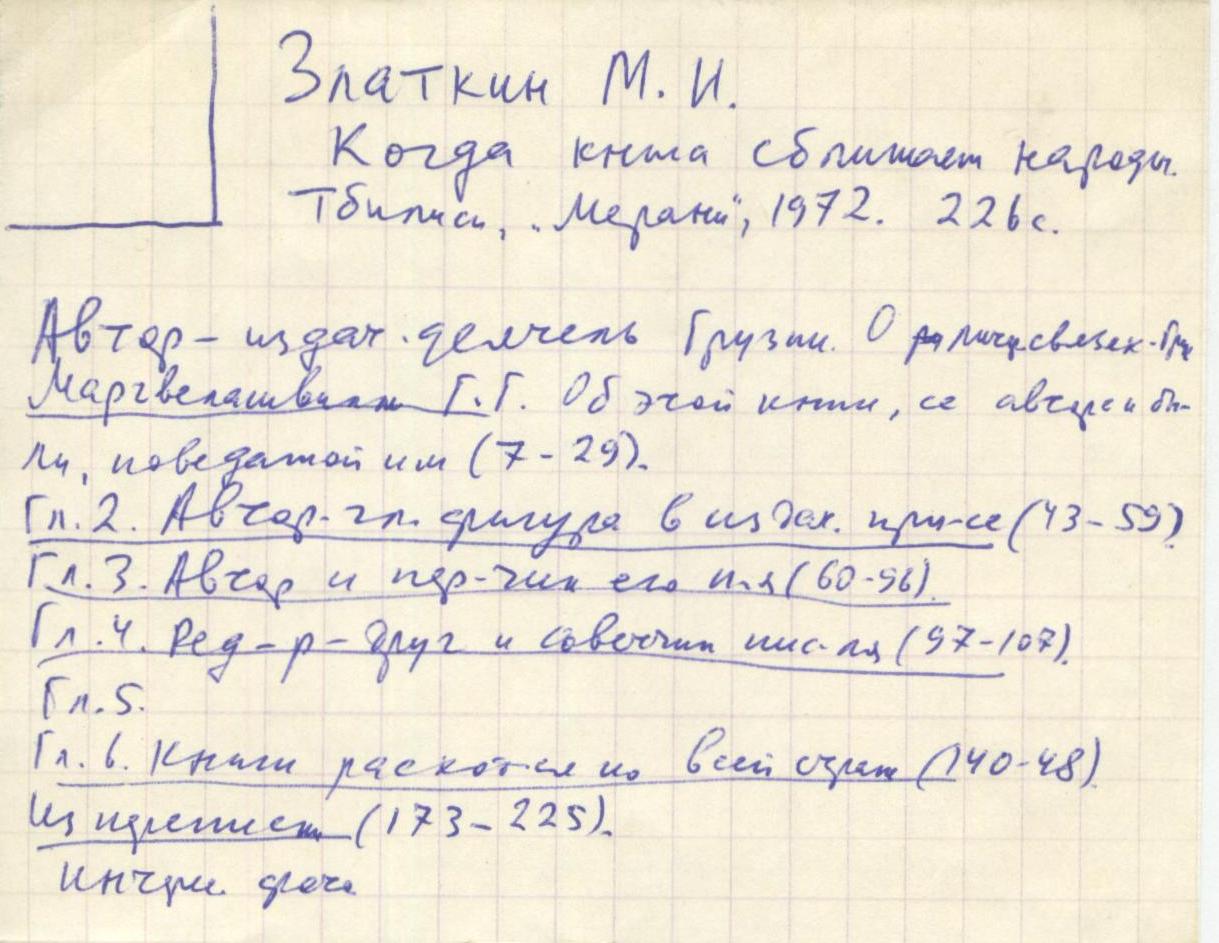 Златкин М. И.
Когда книга сближает народы.
Тбилиси, „Мерани", 1972. 226 с.
Автор – издат. деятель Грузии. О
Маргвелашвили Г.Г. Об этой книге, ее авторе и бы-
ли, поведанной им (7 – 29).
Гл. 2. Автор – гл. фигура в издат. про-се (43 – 59)
Гл. 3. Автор и пер-чик его (60-96).
Гл. 4. Ред-р – друг и советчик пис-ля (97-107).
Гл. 5.
Гл. 6. Книги расход-ся по всей стране (140-48)
Из переписки (173 – 225).
Интрн. фото